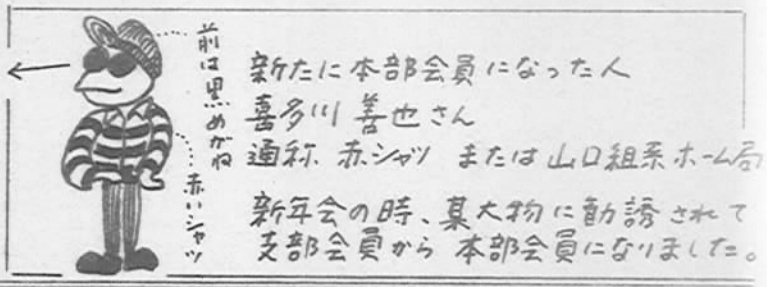 前は黒めがね
赤いシャツ
新たに本部会員になった人
喜多川 善也さん
通称 赤シャツ または 山口組系ホーム局
新年会の時、某大物に勧誘されて
支部会員から 本部会員になりました。